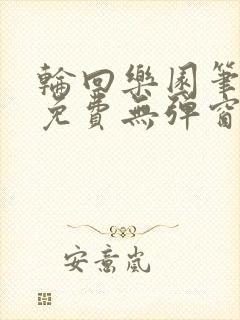 輪回樂園筆
免費無彈窗
安意嵐